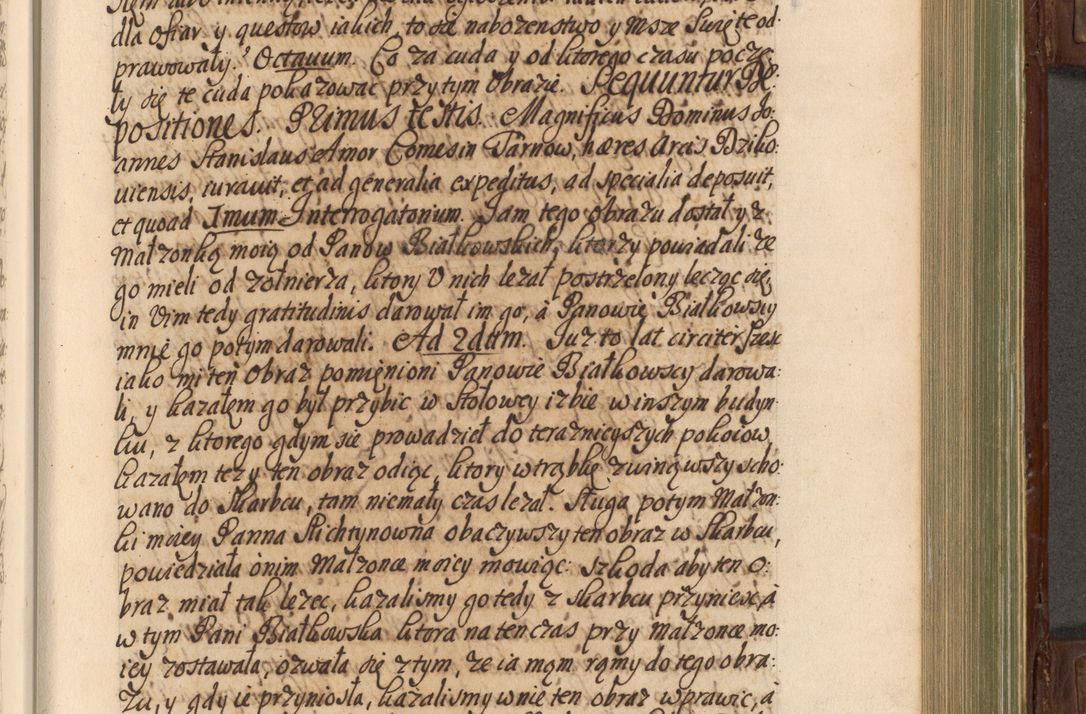 dla ofiar y questow iakich, to tæ nabozenstwo y Msze Swięte od:
prawowały. Octauum. Co za cuda y od ktorego czasu poczę:
ły się te cuda pokazować przy tym Obrazie. Sequuntur De:
positiones. Primus testis. Magnificus Dominus Jo:
annes Stanislaus Amor Comes in Tarnow, hæres Arcis Dziko:
uiensis, iurauit, et ad generalia expeditus, ad specialia deposuit,
et quoad Imum Interrogatorium. Iam tego obrazu dostał y z
Małzonką moią od Panow Białkowskich, ktorzy powiedali ze
go mieli od zołnierza, ktory U nich lezał postrzelony lecząc się,
in Vim tedy gratitudinis darował im go, à Panowie Białkowscy
mnie go potym darowali. Ad 2dum. Iuz to lat circiter szesc
iako mi ten Obraz pomięnioni Panowie Białkowscy darowa:
li, y kazałem go był przybic w Stołowey izbie w inszym budyn:
ku, z ktorego gdym się prowadzieł do teraznieyszych pokoiow,
kazałem tez y ten obraz odiąc, ktory w trąbkę zwinąwszy scho:
wano do Skarbcu, tam niemały czas lezał. Sługa potym Małzon:
ki moiey Panna Stichtynowna obaczywszy ten obraz w Skarbcu,
powiedziała o nim Małzonce moiey mowiąc: szkoda aby ten o:
braz miał tak lezec, kazalismy go tedy z skarbcu przyniesc, à
w tym Pani Białkowska ktora na ten czas przy Małzonce mo:
iey zostawała, ozwała się z tym, ze ia mąm rąmy do tego obra:
zu, y gdy ie przyniosła, kazalismy w nie ten obraz wprawic, à